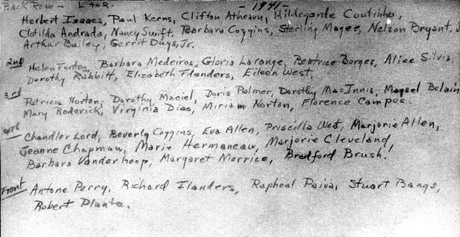 Back Row - L to R. - 1941 -
Herbert Isaacs, Paul Kerns, Clifton Athearn, Hildegarde Coutinho,
Clotilda Andrada, Nancy Swift, Barbara Coggins, Sterling Magee, Nelson Bryant, J
Arthur Bailey, Gerrit Duys, Jr.
2nd Helen Fontes, Barbara Medeiros, Gloria Larange, Beatrice Borges, Alice Silvia,
Dorothy Rabbitt, Elizabeth Flanders, Eileen West,
3rd Patricia Norton, Dorothy Maciel, Doris Palmer, Dorothy MacInnis, Maysel Belain
Mary Roderick, Virginia Dias, Miriam Norton, Florence Campos.
Chandler Lord, Beverly Coggins, Eva Allen, Priscilla West, Marjorie Allen,
Jeanne Chapman, Marie Hermaneau, Marjorie Cleveland,
Barbara Vanderhoop, Margaret Morrice, Bradford Brush.
Front Antone Perry, Richard Flanders, Rapheal Paiva, Stuart Bangs,
Robert Plante.